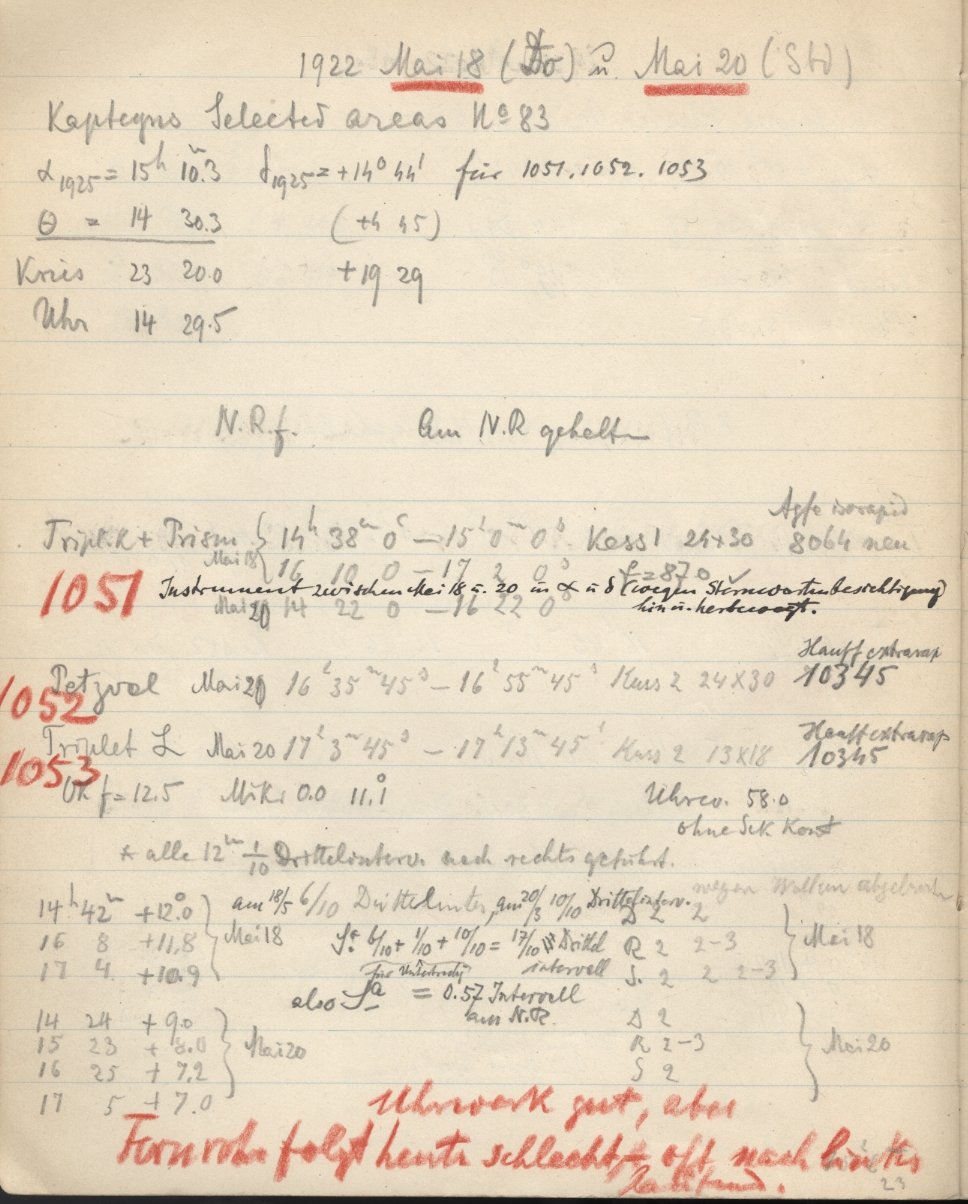 1922 Mai 18 (Do) u. Mai 20 (Sbd)
Kapteyns Selected areas No 83
α1925 = 15h 10m.3 δ1925 = +14° 44' für 1051. 1052. 1053
Θ = 14 30.3 (+4 45)
Kreis 23 20.0 +19 29
Uhr 14 29.5
N.R.f. Am N.R gehalten
Agfa isorapid
Tripl. K + Prism 14h 38m 0s — 15h 0m 0s Kass 1 24×30 8064 neu
Mai 18 16 10 0 — 17 2 0s f = 87.0 ✓
1051 Instrument zwischen Mai 18 u. 20 in α u δ (wegen Sternwartenbesichtigung)
hin u. herbewegt.
Mai 20 14 22 0 — 16 22 0s
Hauff extrarap
1052 Petzval Mai 20 16h 35m 45s — 16h 55m 45s Kass 2 24×30 10345
Hauff extrarap
1053 Triplet L Mai 20 17h 3m 45s — 17h 13m 45s Kass 2 13×18 10345
f = 12.5 Mikr 0.0 11.1° Uhrw. 58.0
ohne Sek Kont
* alle 12m 1/10 Drittelinterv. nach rechts geführt.
wegen Wolken abgebrochen
14h 42m +12.0° Mai 18 am 18/5 6/10 Drittelinter, am 20/5 10/10 Drittelinterv. D 2 2 Mai 18
16 8 +11.8 6/10 + 1/10 + 10/10 = 17/10 Drittel R 2 2-3
17 4 +10.9 für intervall S. 2 2 2-3
also = 0.57 Intervall
am N.R.
14 24 +9.0 Mai 20 D 2 Mai 20
15 23 +8.0 R 2-3
16 25 +7.2 S 2
17 5 +7.0
Uhrwerk gut, aber
Fernrohr folgt heute schlecht, oft nach links
laufend.
23